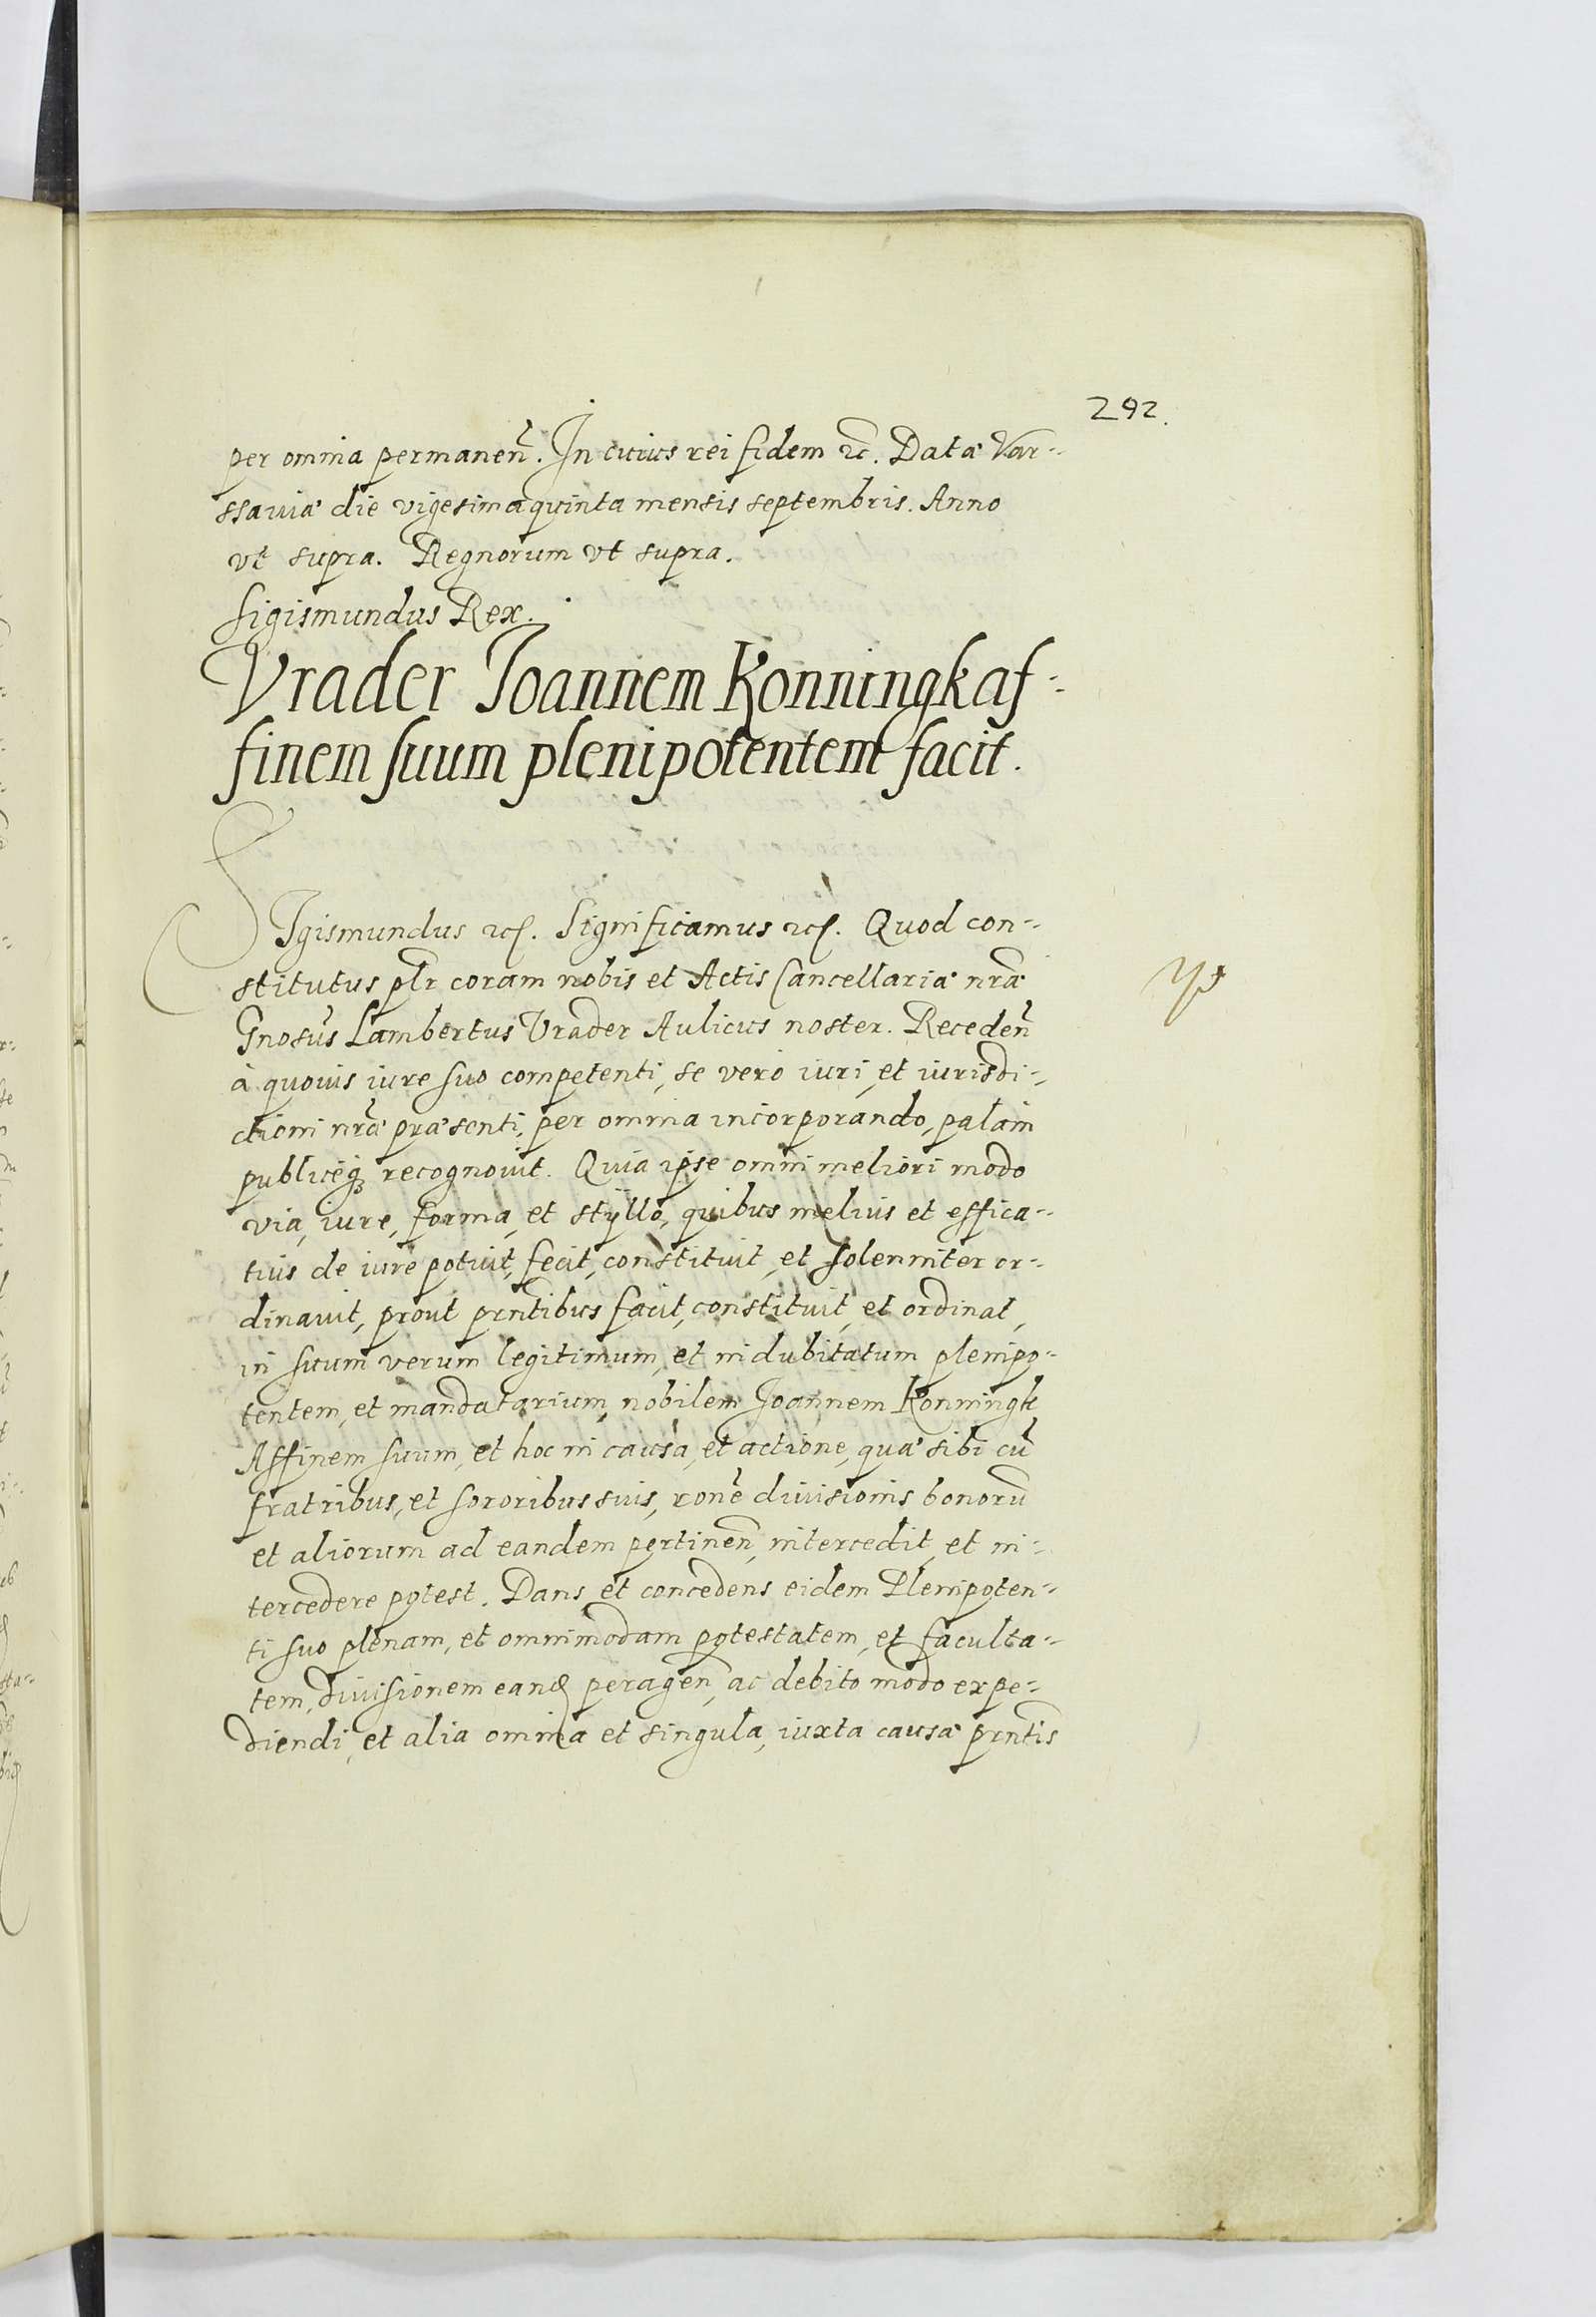 292.
per omnia permanen̄. In cuius rei fidem ꝛc. Datæ Var-
ssauiæ die vigesima quinta mensis septembris. Anno
vt supra. Regnorum vt supra.
Sigismundus Rex.
Vrader Joannem Konningk af-
finem suum plenipotentem facit.
SIgismundus ꝛc. Significamus ꝛc. Quod con-
stitutus plr̄ coram nobis et Actis Cancellariæ nr̄æ
Gnosus̄ Lambertus Vrader Aulicus noster. Receden̄
à quouis iure suo competenti, se verò iuri, et iurisdi-
ctioni nr̄æ præsenti, per omnia incorporando, palàm
publicèqꝫ recognouit. Quia ipse omni meliori modo
via, iure, forma, et stÿllo, quibus melius et effica-
tius de iure potuit, fecit, constituit, et solenniter or-
dinauit, prout prntībus facit, constituit, et ordinat,
in suum verum legitimum, et indubitatum plenipo-
tentem, et mandatarium, nobilem Joannem Konningk
Affinem suum, et hoc in causa, et actione, quæ sibi cū
fratribus, et sororibus suis, ronē diuisionis bonorū
et aliorum ad eandem pertinen̄, intercedit, et in-
tercedere potest. Dans et concedens eidem Plenipoten-
ti suo plenam, et omnimodam potestatem, et faculta-
tem, diuisionem eand peragen̄, ac debito modo expe-
diendi, et alia omnia et singula, iuxta causæ prntīs